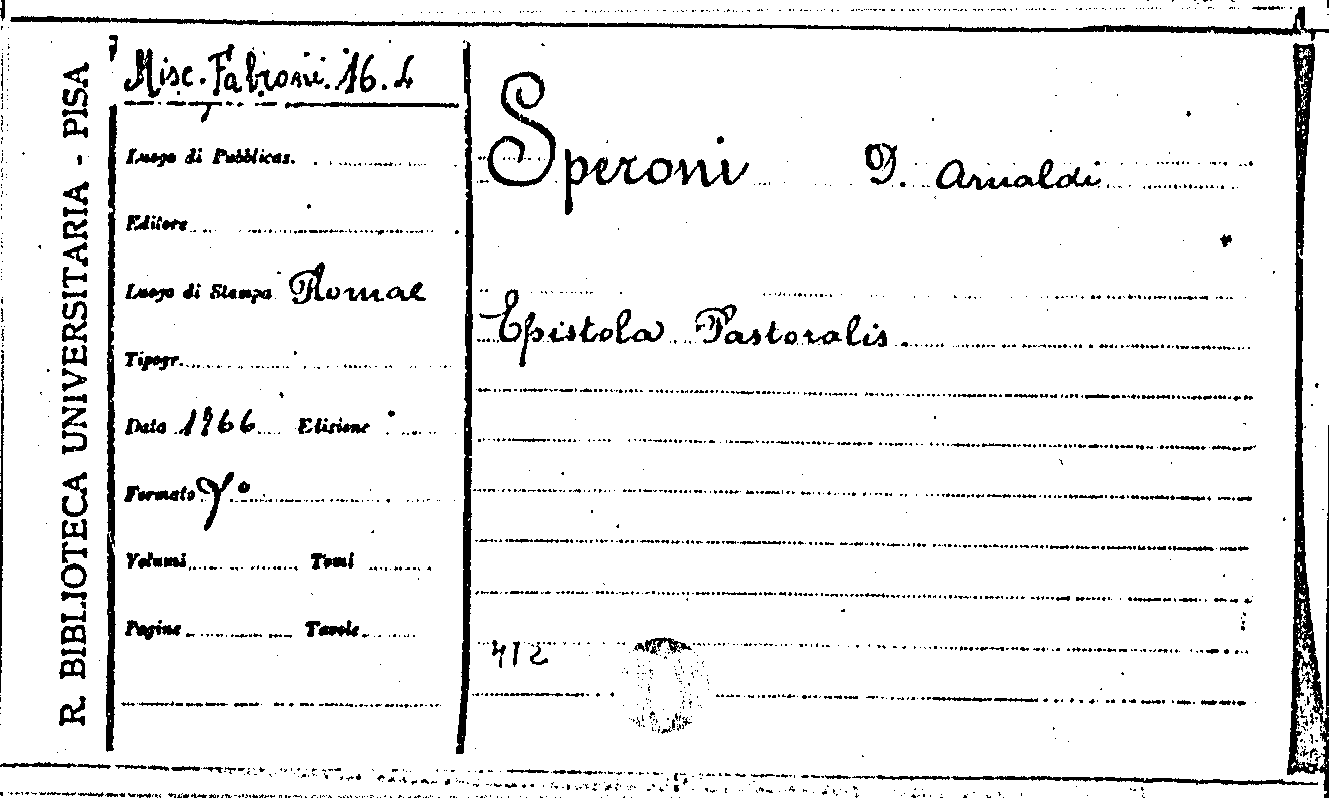 R. BIBLIOTECA UNIVERSITARIA - PISA
Misc. Fabroni. 16. 4
Luogo di Pubblicaz.
Editore
Luogo di Stampa Romae
Tipogr.
Data 1766 Edizione
Formato 4°
Volumi Tomi
Pagine Tavole
Speroni D. Arnaldi
Epistola Pastoralis.
412